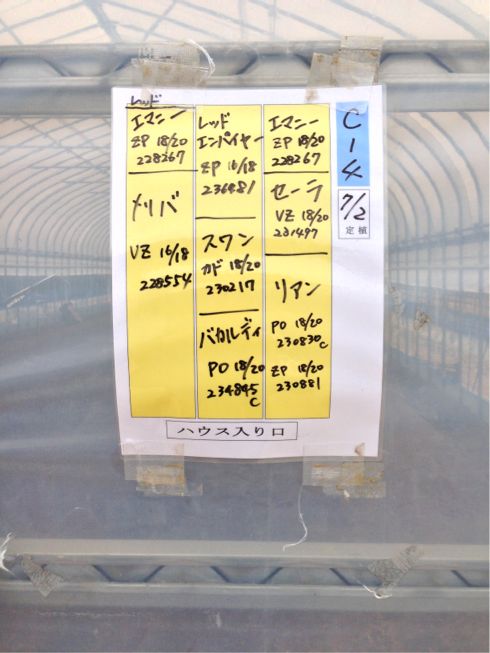 レッド
エマニー
ZP 18/20
228267
メリバ
VZ 16/18
228554
レッド
エンパイヤー
ZP 16/18
236481
スワン
カド 18/20
230217
バカルディ
PO 18/20
234845
C
エマニー
ZP 18/20
228267
セーラ
VZ 18/20
231497
リアン
PO 18/20
230830c
ZP 18/20
230881
C-4
7/2
定植
ハウス入り口